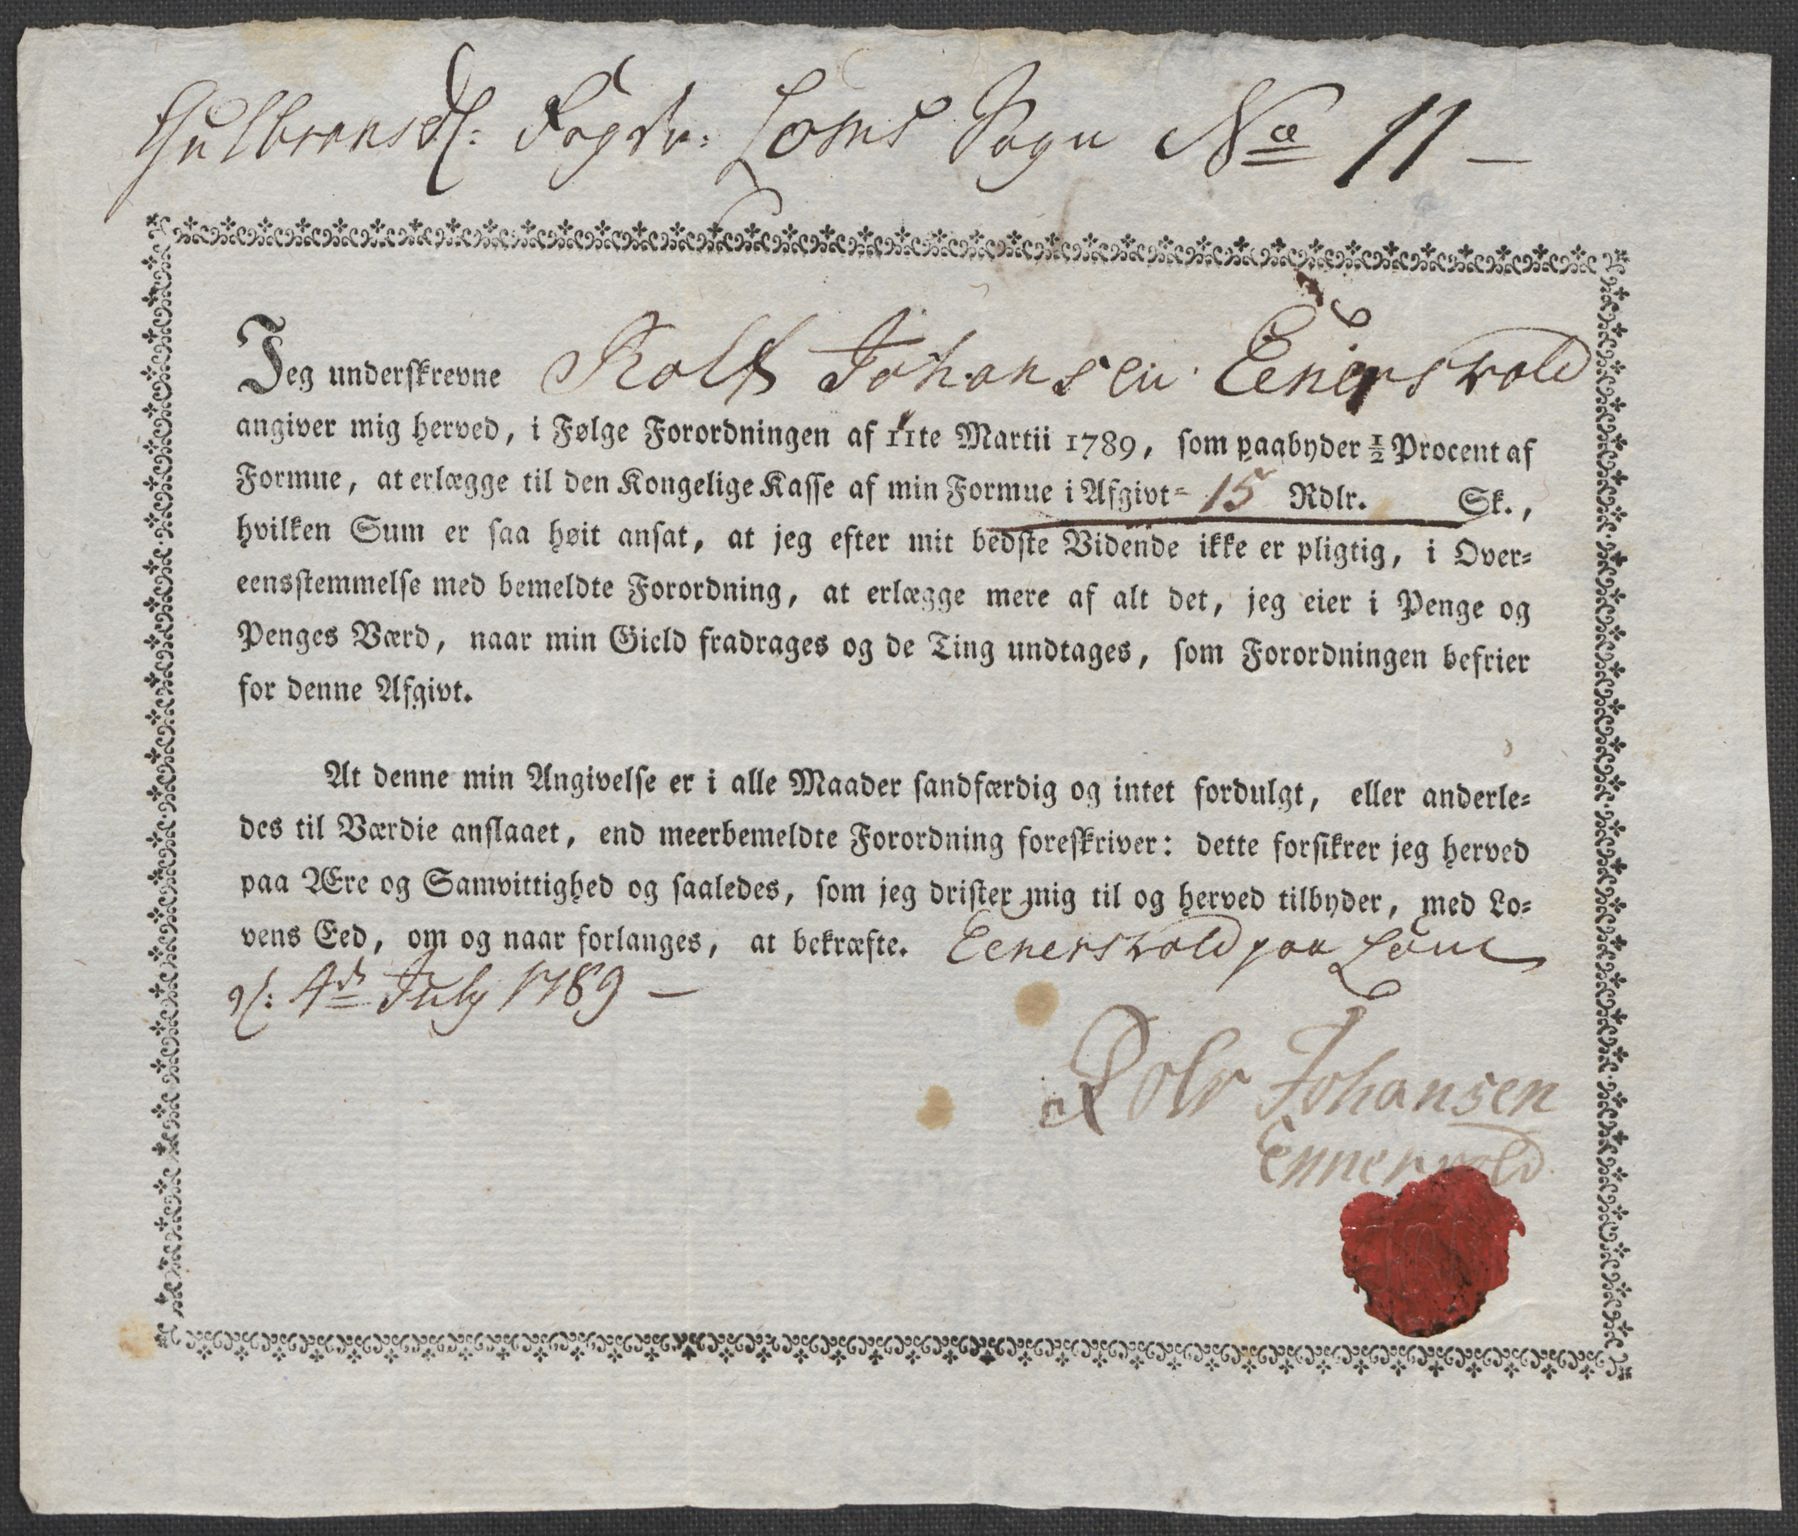 Gulbransdl: Fogdr: Loms Sogn No 11 —
Jeg underskrevne Rolf Johansen Eenersvold
angiver mig herved, i Følge Forordningen af 11te Martii 1789, som paabyder ½ Procent af
Formue, at erlægge til den Kongelige Kasse af min Formue i Afgivt= 15 Rdlr. Sk.,
hvilken Sum er saa høit ansat, at jeg efter mit bedste Vidende ikke er pligtig, i Over=
eensstemmelse med bemeldte Forordning, at erlægge mere af alt det, jeg eier i Penge og
Penges Værd, naar min Gield fradrages og de Ting undtages, som Forordningen befrier
for denne Afgivt.
At denne min Angivelse er i alle Maader sandfærdig og intet fordulgt, eller anderle=
des til Værdie anslaaet, end meerbemeldte Forordning foreskriver: dette forsikrer jeg herved
paa Ære og Samvittighed og saaledes, som jeg drister mig til og herved tilbyder, med Lo=
vens Eed, om og naar forlanges, at bekræfte. Eenersvold paa Lom
d: 4de July 1789 —
Rolv Johansen
Ennervold